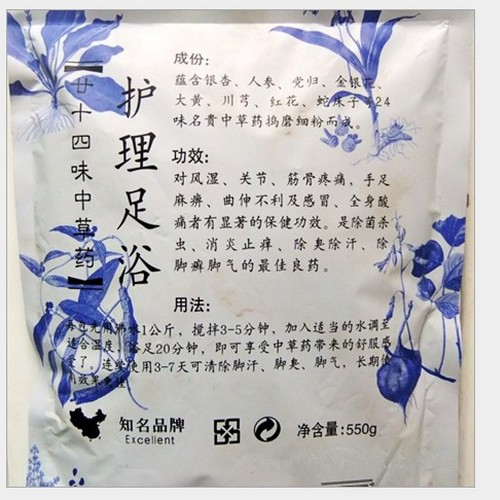 廿十四味中草药
护理足浴
成份:
蕴含银杏、人参、党归、金银花、
大黄、川芎、红花、蛇床子等24
味名贵中草药捣磨细粉而成。
功效:
对风湿、关节、筋骨疼痛,手足
麻痹、曲伸不利及感冒、全身酸
痛者有显著的保健功效。是除菌杀
虫、消炎止痒、除臭除汗、除
脚癣脚气的最佳良药。
用法:
先用沸水1公斤,搅拌3-5分钟,加入适当的水调至
适合温度,浴足20分钟,即可享受中草药带来的舒服感
受了。连续使用3-7天可清除脚汗、脚臭、脚气,长期使
用效果更佳
知名品牌
Excellent
净含量:550g